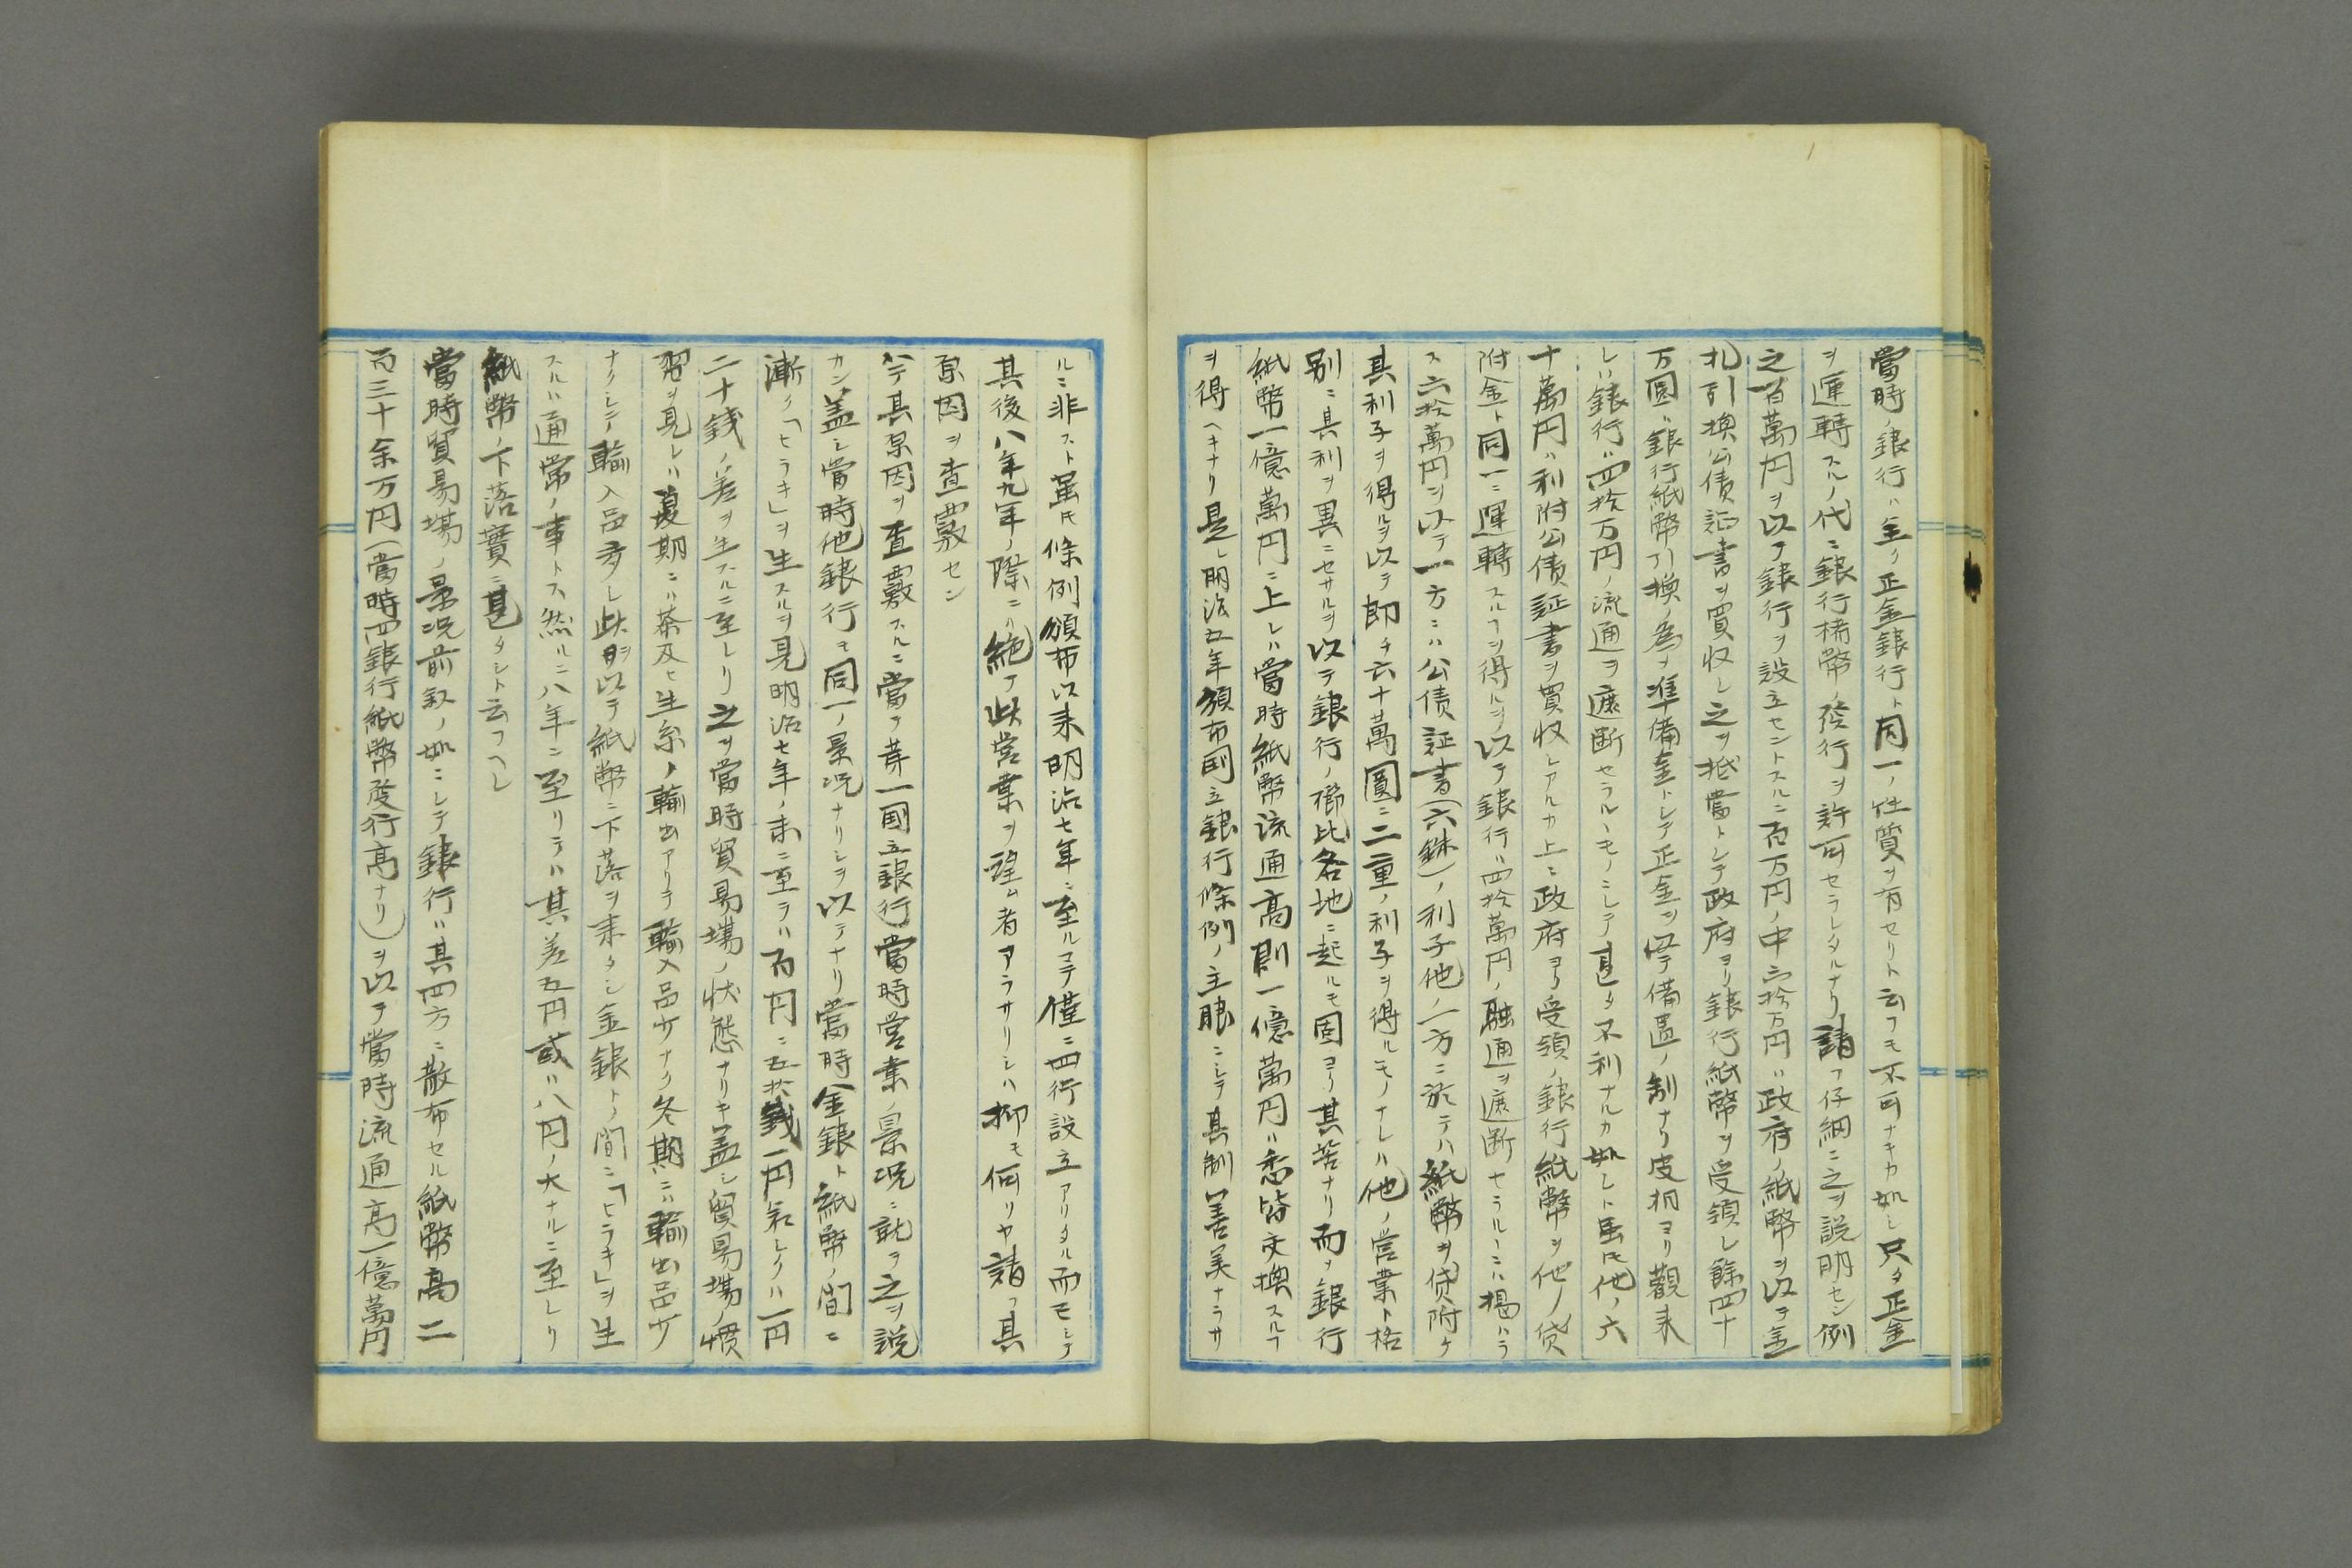 當時ノ銀行ハ全ク正金銀行ト同一ノ性質ヲ有セリト云フモ不可ナキカ如シ只タ正金
ヲ運轉スルノ代ニ銀行桸幣ノ発行ヲ許可セラレタルナリ請フ仔細ニ之ヲ説明セン例
之一百萬円ヲ以テ銀行ヲ設立セントスルニ百万円ノ中六拾万円ハ政府ノ紙幣ヲ以テ金
札引換公債証書ヲ買収シ之ヲ抵當トシテ政府ヨリ銀行紙幣ヲ受領シ餘四十
万圓ハ銀行紙幣引換ノ為メ準備金トシテ正金ヲ以テ備置ノ制ナリ皮相ヨリ觀来
レハ銀行ハ四拾万円ノ流通ヲ遮断セラルヽモノニシテ甚タ不利ナルカ如シト虽氏他ノ六
十萬円ハ利附公債証書ヲ買収シアルカ上ニ政府ヨリ受領ノ銀行紙幣ヲ他ノ貸
附金ト同一ニ運轉スルヿヲ得ルヲ以テ銀行ハ四拾萬円ノ融通ヲ遮断セラルヽニハ拘ハラ
ス六拾萬円ヲ以テ一方ニハ公債証書(六銖)ノ利子他ノ一方ニ於テハ紙幣ヲ貸附ケ
其利子ヲ得ルヲ以テ即チ六十萬圓ニ二重ノ利子ヲ得ルモノナレハ他ノ営業ト格
別ニ其利ヲ異ニセサルヲ以テ銀行ノ櫛比各地ニ起ルモ固ヨリ其筈ナリ而ヲ銀行
紙幣一億萬円ニ上レハ當時紙幣流通高則一億萬円ハ悉皆交換スルヿ
ヲ得ヘキナリ是レ明治五年頒布国立銀行條例ノ主眼ニシテ其制善美ナラサ
ルニ非スト虽氏條例頒布以来明治七年ニ至ルマテ僅ニ四行設立アリタル而モシテ
其後八年九年ノ際ニハ絶テ此営業ヲ望ム者アラサリシハ抑モ何リヤ請フ其
原因ヲ査覈セン
今其原因ヲ査覈スルニ當テ第一国立銀行當時営業ノ景況ニ就テ之ヲ説
カン蓋シ當時他銀行モ同一ノ景況ナリシヲ以テナリ當時金銀ト紙幣ノ間ニ
漸ク「ヒラキ」ヲ生スルヲ見明治七年ノ末ニ至テハ百円ニ五拾銭一円若シクハ一円
二十銭ノ差ヲ生スルニ至レリ之ヲ當時貿易場ノ状態ナリキ蓋シ貿易場ノ慣
習ヲ見レハ夏期ニハ茶及ヒ生糸ノ輸出アリテ輸入品少ナク冬期ニハ輸出品少
ナクシテ輸入品多シ此形ヲ以テ紙幣ニ下落ヲ来タシ金銀トノ間ニ「ヒラキ」ヲ生
スルハ通常ノ事トス然ルニ八年ニ至リテハ其差五円或ハ八円ノ大ナルニ至レリ
紙幣ノ下落實ニ甚タシト云フヘシ
當時貿易場ノ景況前叙ノ如ニシテ銀行ハ其四方ニ散布セル紙幣高二
百三十余万円(當時四銀行紙幣発行高ナリ)ヲ以テ當時流通高一億萬円